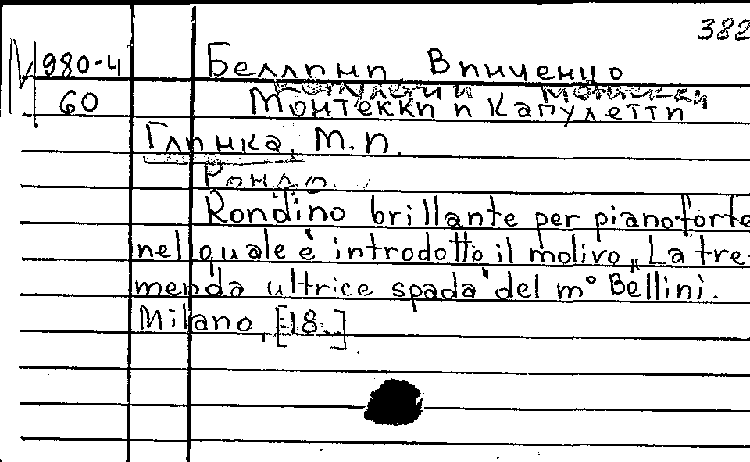 382
М 980-4
60
Беллини, Винченцо
Монтекки и Капулетти
Глинка, М.И.
Рондо.
Rondino brillante per pianoforte
nel quale è introdotto il molivo „La tre-
menda ultrice spada" del m° Bellini.
Milano, [18..]